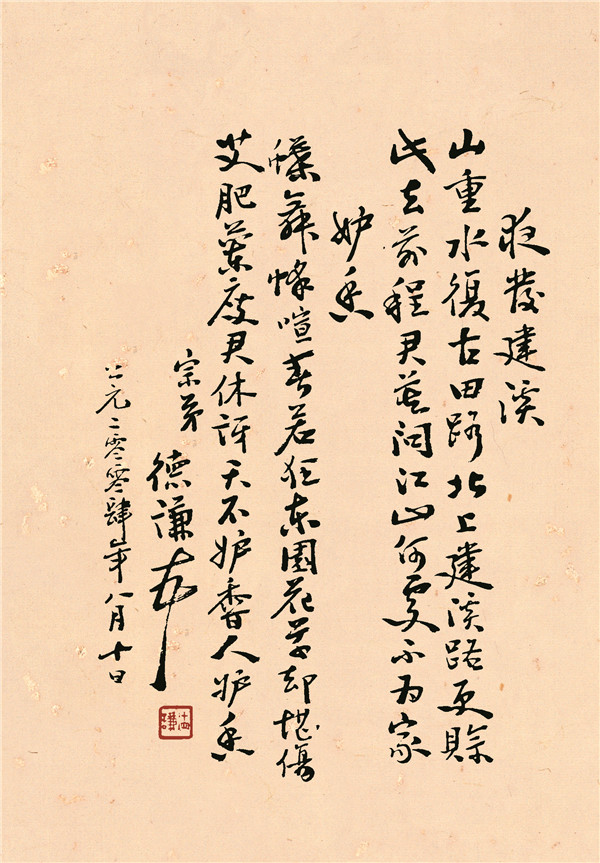 夜發建溪
山重水復古田路北上建溪路更賒
此去前程君莫問江山何處不為家
妒香
蝶舞蜂喧春若狂東園花草却堪傷
艾肥蘭瘦君休訝天不妒香人妒香
宗弟 德謙
公元二零零肆年八月十日